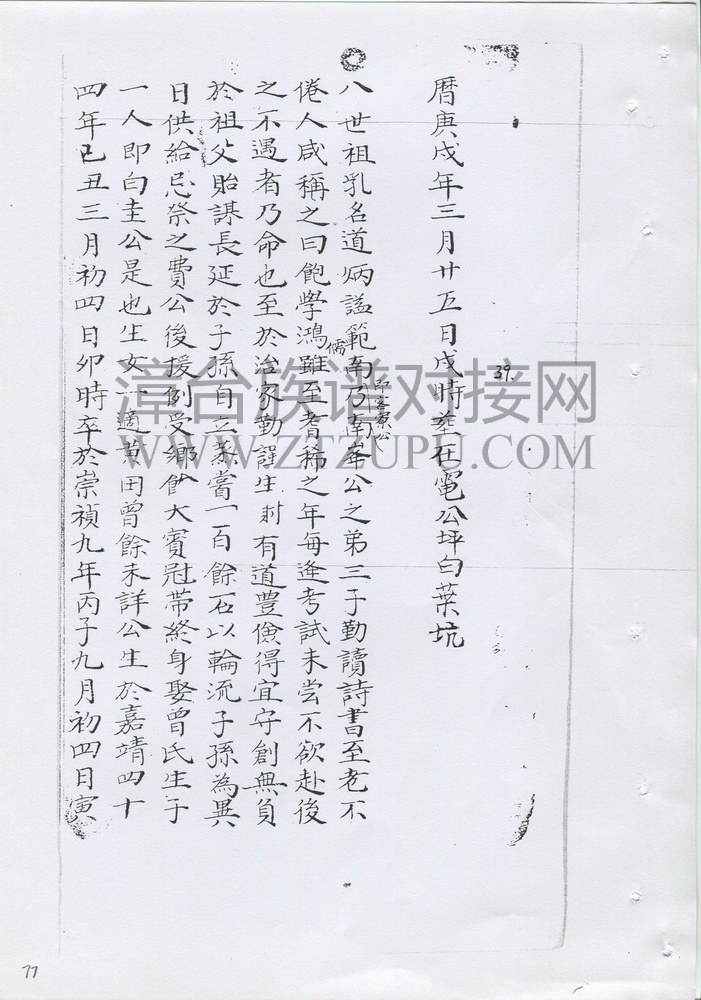 39.
曆庚戌年三月廿五日戌時葬在電公坪白葉坑
八世祖乳名道炳謚範南乃南峯公之弟三子勤讀詩書至老不
即客寮公
倦人咸稱之曰飽學鴻儒雖至耆稀之年每逢考試未嘗不欲赴後
之不遇者乃命也至於治家勤謹生財有道豊儉得宜守創無負
於祖父貽謀長延於子孫自立蒸嘗一百餘石以輪流子孫為異
日供給忌祭之費公後援例受鄉飲大賓冠帶終身娶曾氏生子
一人即白圭公是也生女一適黃田曾餘未詳公生於嘉靖四十
四年已丑三月初四日卯時卒於崇禎九年丙子九月初四日寅
漳台族谱对接网
WWW.ZTZUPU.COM
77